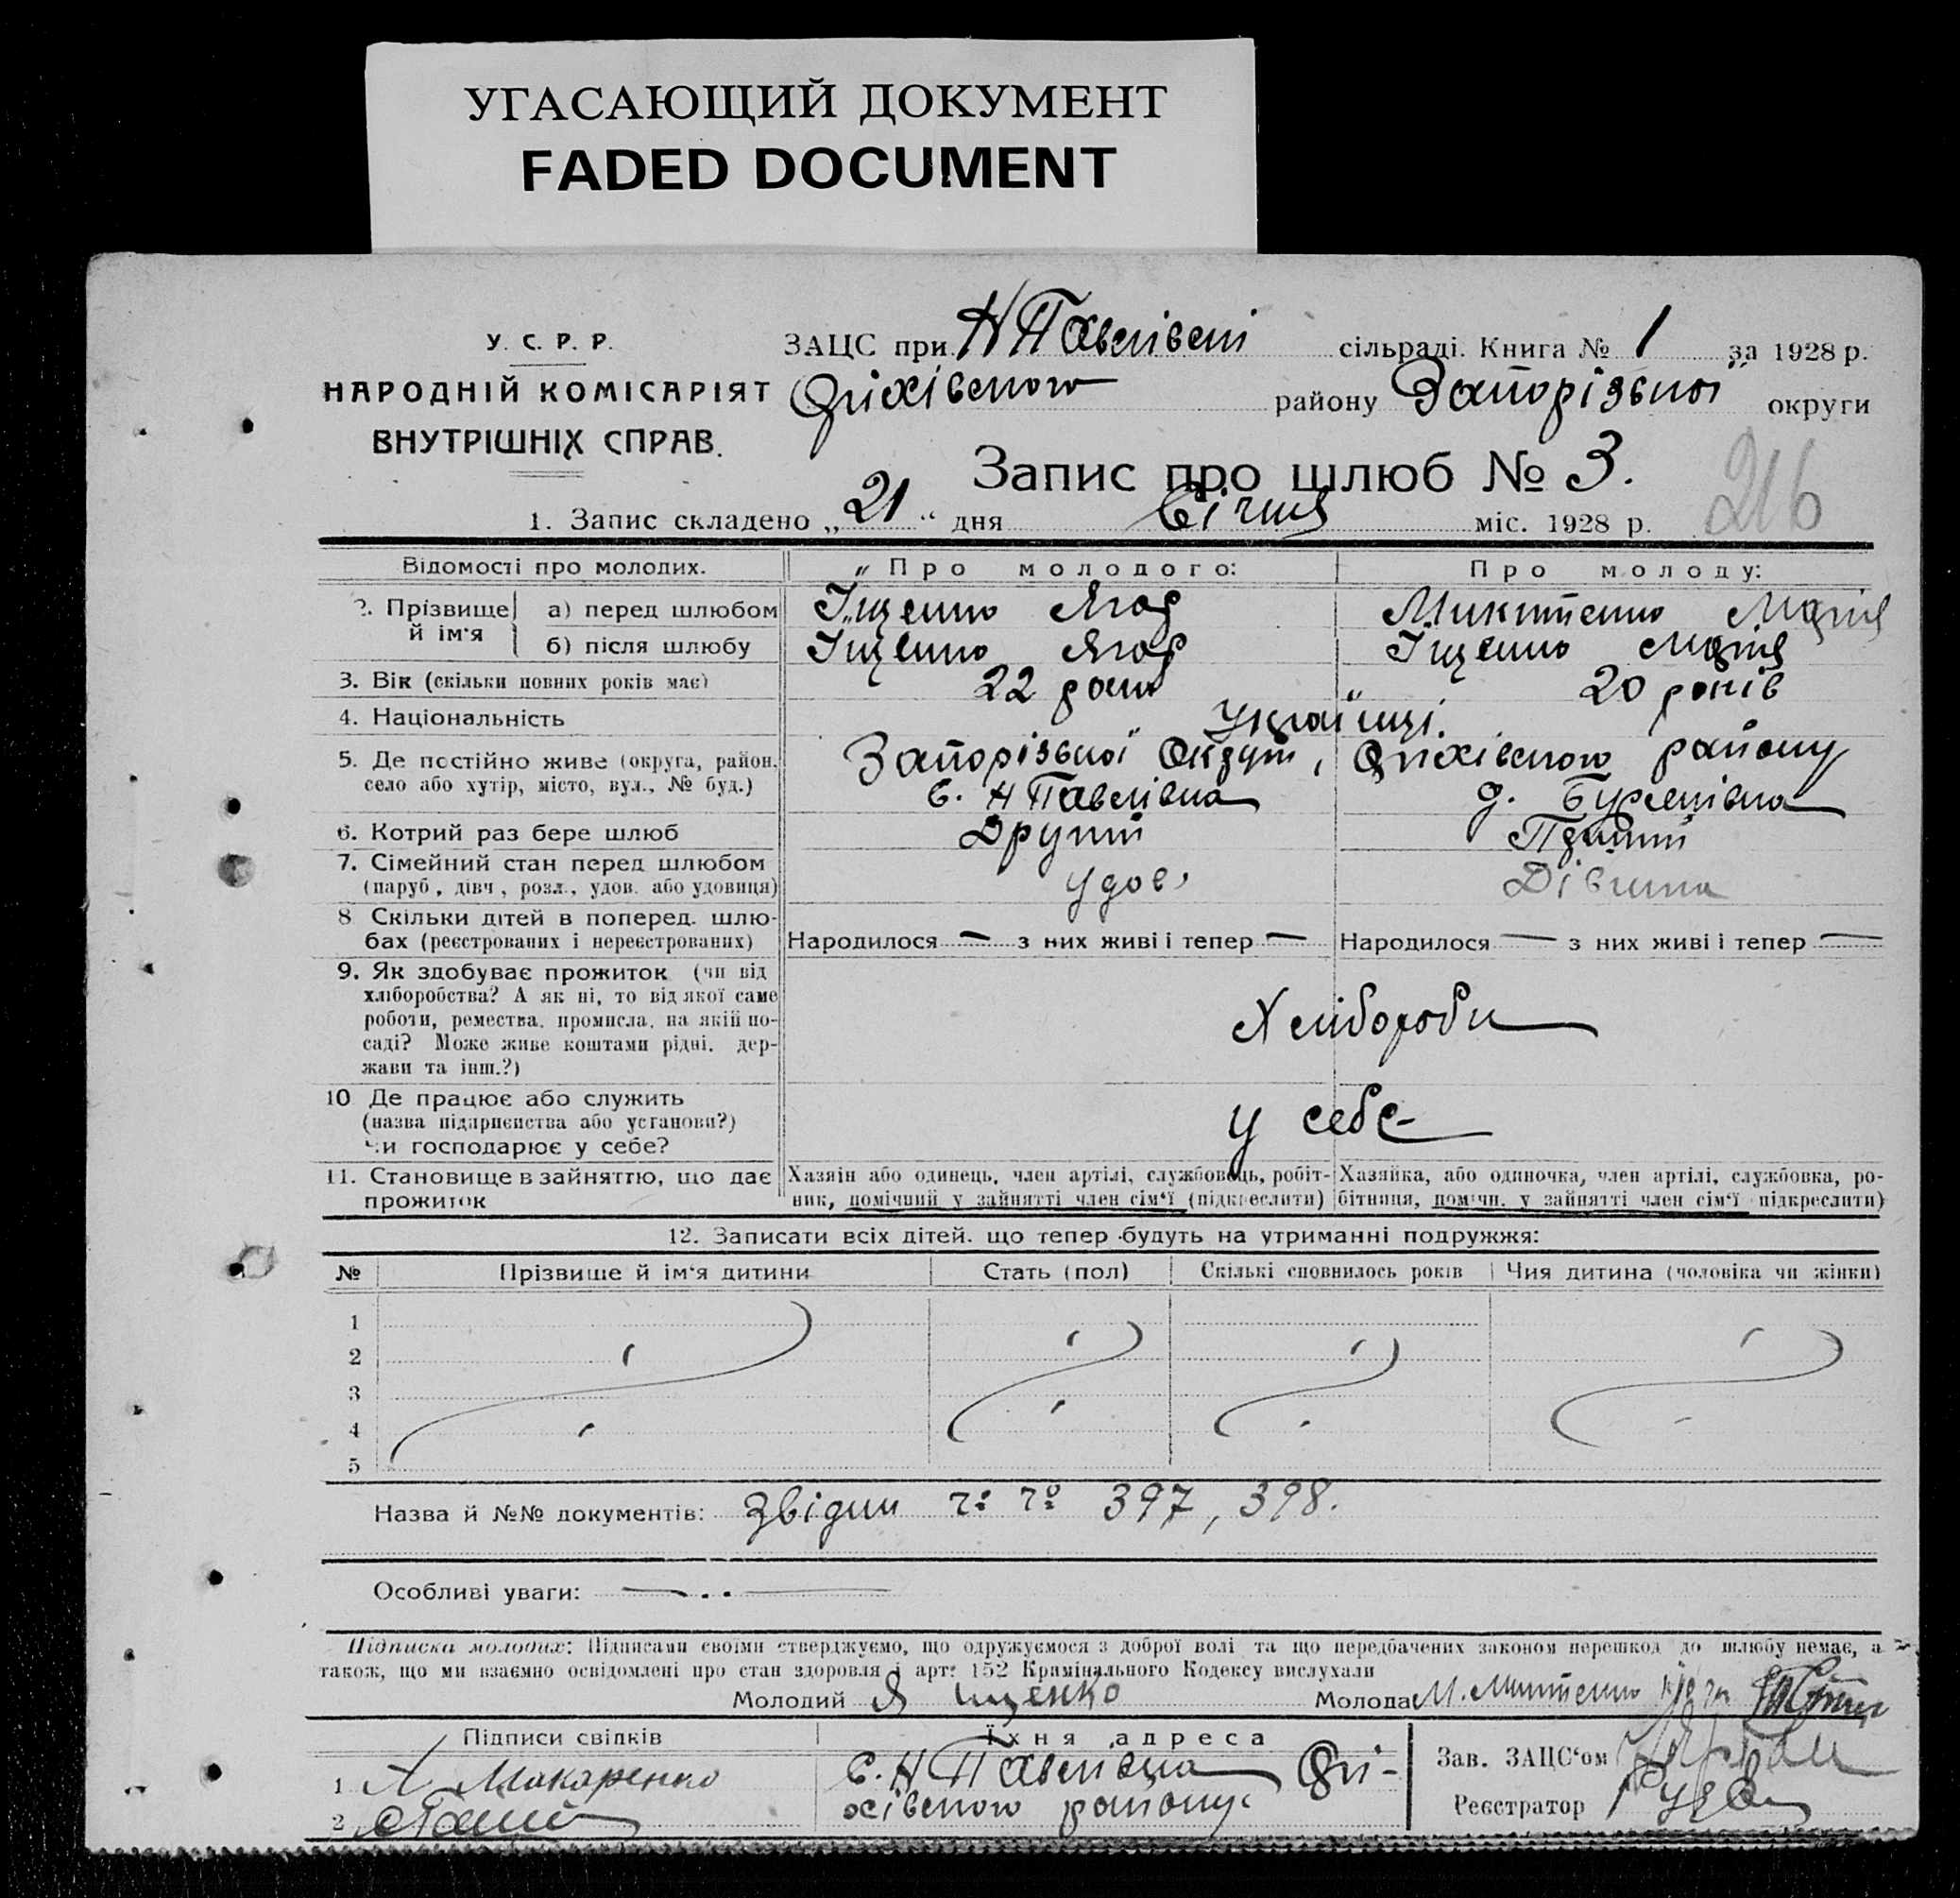 УГАСАЮЩИЙ ДОКУМЕНТ
FADED DOCUMENT
У. С. Р. Р.
НАРОДНІЙ КОМІСАРІЯТ
ВНУТРІШНІХ СПРАВ.
ЗАЦС при Н Павлівській сільраді. Книга № 1 за 1928 р.
Оріхівського району Запорізької округи
Запис про шлюб № 3.
216
1. Запис складено „21“ дня Січня міс. 1928 р.
Відомості про молодих. Про молодого: Про молоду:
2. Прізвище й ім'я а) перед шлюбом Іщенко Ягор Микитенко Марія
б) після шлюбу Іщенко Ягор Іщенко Марія
3. Вік (скільки повних років має) 22 роки 20 років
4. Національність Українці.
5. Де постійно живе (округа, район, Запорізької Округи, Оріхівського району
село або хутір, місто, вул., № буд.) с. Н Павлівка
6. Котрий раз бере шлюб Другий Перший
7. Сімейний стан перед шлюбом
(паруб., дівч., розл., удов. або удовиця) удов. Дівчина
8 Скільки дітей в поперед. шлю-
бах (реєстрованих і нереєстрованих) Народилося — з них живі і тепер — Народилося — з них живі і тепер —
9. Як здобуває прожиток (чи від
хліборобства? А як ні, то від якої саме
роботи, ремества, промисла, на якій по-
саді? Може живе коштами рідні, дер-
жави та інш.?) Хлібороби
10 Де працює або служить
(назва підприємства або установи?)
чи господарює у себе? у себе
11. Становище в зайняттю, що дає
прожиток
Хазяїн або одинець, член артілі, службовець, робіт-
ник, помічний у зайнятті член сім'ї (підкреслити)
Хазяйка, або одиночка, член артілі, службовка, ро-
бітниця, помічн. у зайнятті член сім'ї підкреслити)
12. Записати всіх дітей, що тепер будуть на утриманні подружжя:
№ Прізвище й ім'я дитини Стать (пол) Скількі сповнилось років Чия дитина (чоловіка чи жінки)
1
2
3
4
5
Назва й №№ документів: 397, 398.
Особливі уваги:
Підписка молодих: Підписами своїми стверджуємо, що одружуємося з доброї волі та що передбачених законом перешкод до шлюбу немає, а
також, що ми взаємно освідомлені про стан здоровля і арт. 152 Крамінального Кодексу вислухали
Молодий Я Іщенко Молода М. Микитенко
Підписи свідків Їхня адреса
1 А Макаренко с. Н Павлівка Орі-
2 хівського району.
Зав. ЗАЦС'ом
Реєстратор